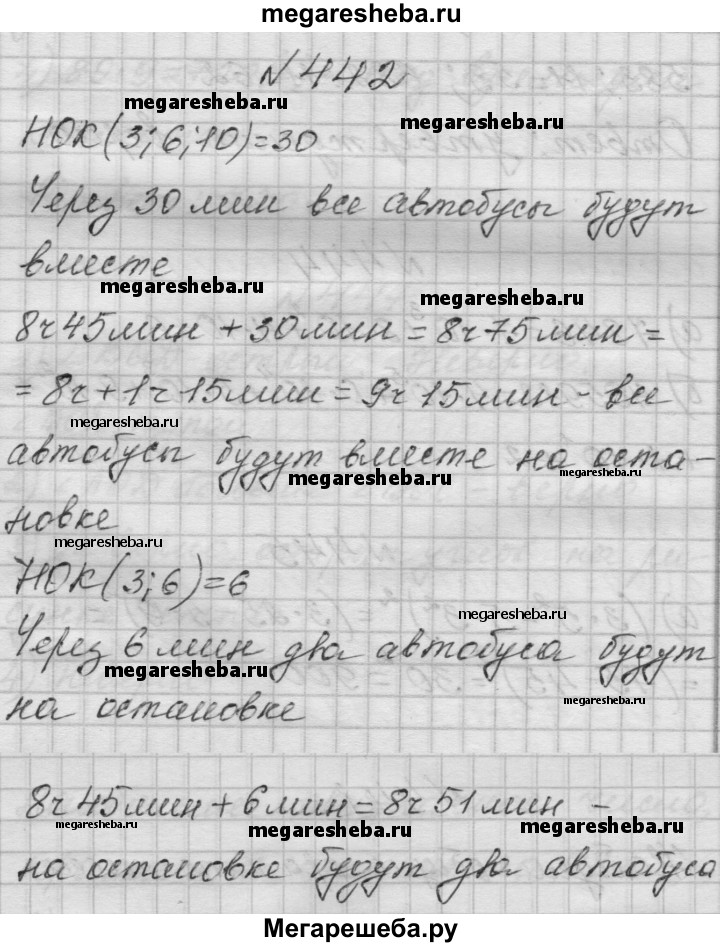 megaresheba.ru
№442
megaresheba.ru
megaresheba.ru
НОК(3;6;10)=30
Через 30 мин все автобусы будут
вместе
megaresheba.ru
megaresheba.ru
8ч45мин + 30мин = 8ч75мин =
= 8ч+1ч15мин = 9ч15мин - все
megaresheba.ru
автобусы будут вместе на оста-
megaresheba.ru
megaresheba.ru
новке
megaresheba.ru
НОК(3;6)=6
megaresheba.ru
Через 6 мин два автобуса будут
megaresheba.ru
megaresheba.ru
на остановке
8ч45мин + 6мин = 8ч51мин -
megaresheba.ru
megaresheba.ru
megaresheba.ru
на остановке будут два автобуса
Мегарешеба.ру